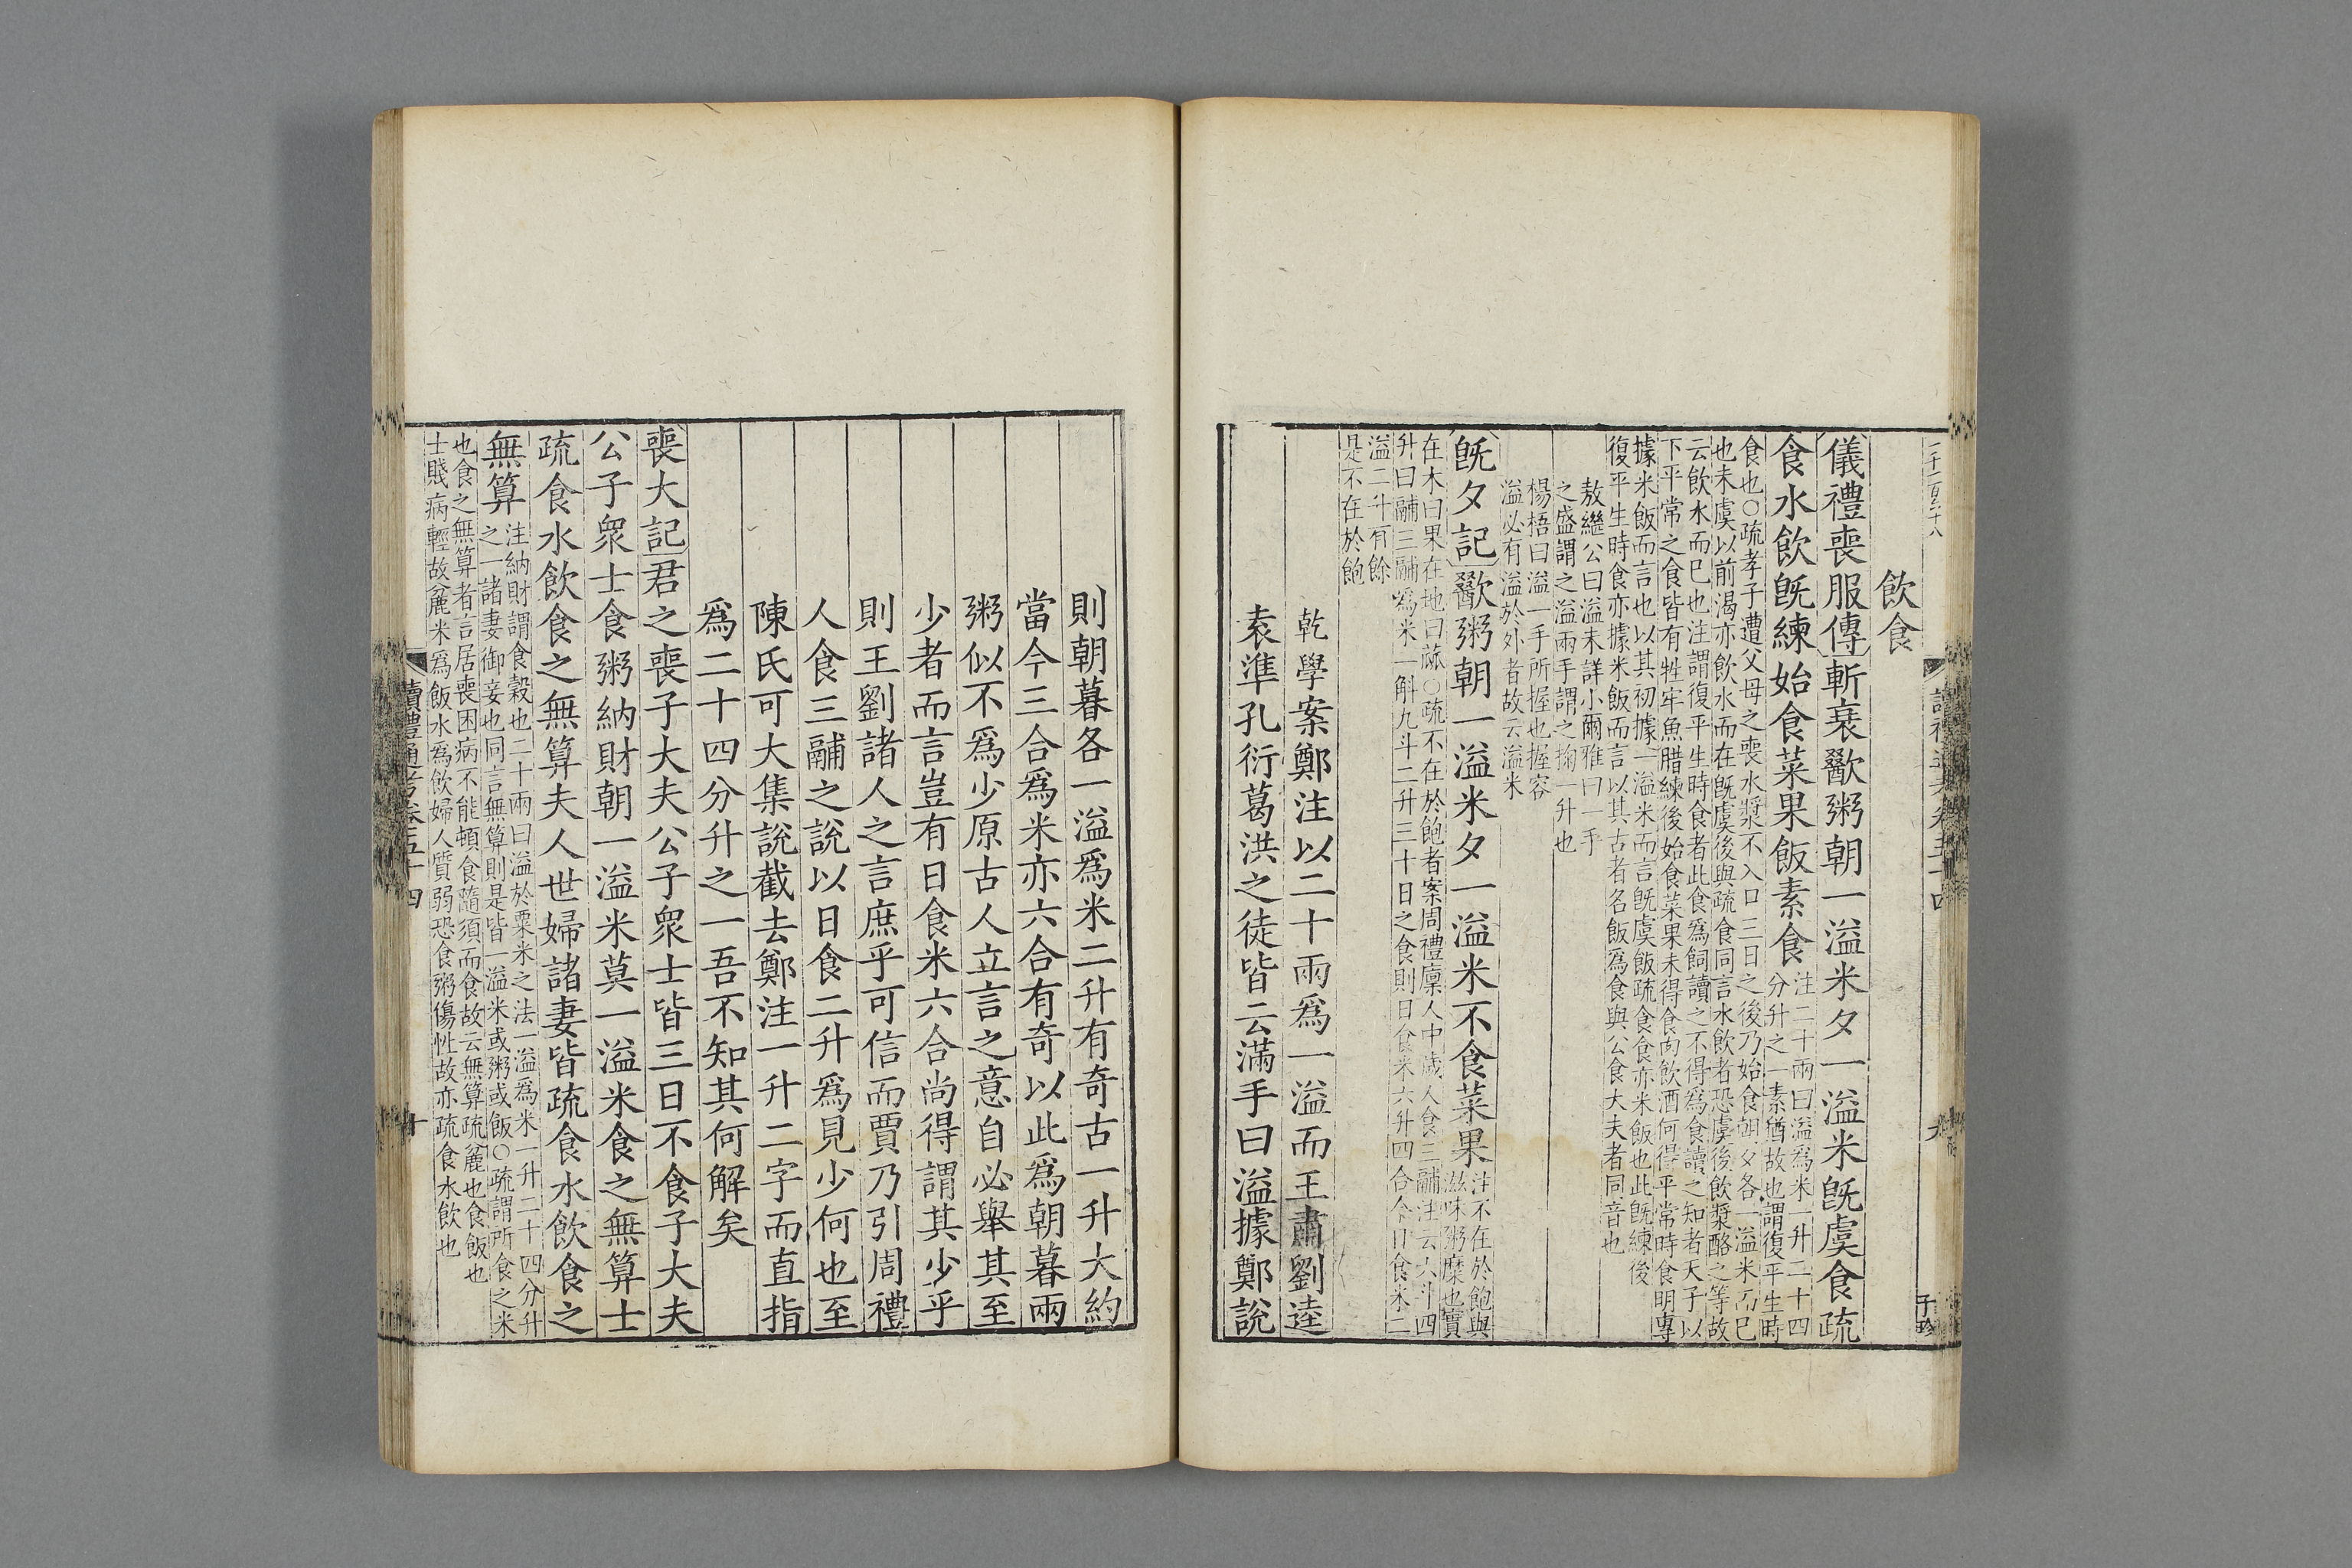 飲食
儀禮喪服傳斬衰歠粥朝一溢米夕一溢米旣虞食疏
食水飲旣練始食菜果飯素食
注二十兩曰溢爲米一升二十四
分升之一素猶故也謂復平生時
食也○疏孝子遭父母之喪水漿不入口三日之後乃始食朝夕各一溢米而已
也未虞以前渴亦飲水而在旣虞後與疏食同言水飲者恐虞後飲漿酪之等故
云飲水而已也注謂復平生時食者此食爲飼讀之不得爲食讀之知者天子以
下平常之食皆有牲牢魚腊練後始食菜果未得食肉飲酒何得平常時食明專
據米飯而言也以其初據一溢米而言旣虞飯疏食食亦米飯也此旣練後
復平生時食亦據米飯而言以其古者名飯爲食與公食大夫者同音也
敖繼公曰溢未詳小爾雅曰一手
之盛謂之溢兩手謂之掬一升也
楊梧曰溢一手所握也握容
溢必有溢於外者故云溢米
旣夕記歠粥朝一溢米夕一溢米不食菜果
注不在於飽與
滋味粥糜也實
在木曰果在地曰蓏○疏不在於飽者案周禮廩人中歲人食三鬴注云六斗四
升曰鬴三鬴爲米一斛九斗二升三十日之食則日食米六升四合今日食米二
溢二升有餘
是不在於飽
乾學案鄭注以二十兩爲一溢而王肅劉逵
袁準孔衍葛洪之徒皆云滿手曰溢據鄭說
則朝暮各一溢爲米二升有奇古一升大約
當今三合爲米亦六合有奇以此爲朝暮兩
粥似不爲少原古人立言之意自必舉其至
少者而言豈有日食米六合尚得謂其少乎
則王劉諸人之言庶乎可信而賈乃引周禮
人食三鬴之說以日食二升爲見少何也至
陳氏可大集說截去鄭注一升二字而直指
爲二十四分升之一吾不知其何解矣
喪大記君之喪子大夫公子衆士皆三日不食子大夫
公子衆士食粥納財朝一溢米莫一溢米食之無算士
疏食水飲食之無算夫人世婦諸妻皆疏食水飲食之
無算
注納財謂食穀也二十兩曰溢於粟米之法一溢爲米一升二十四分升
之一諸妻御妾也同言無算則是皆一溢米或粥或飯○疏謂所食之米
也食之無算者言居喪困病不能頓食隨須而食故云無算疏麤也食飯也
士賤病輕故麤米爲飯水爲飲婦人質弱恐食粥傷性故亦疏食水飲也
讀禮通考卷五十四
十